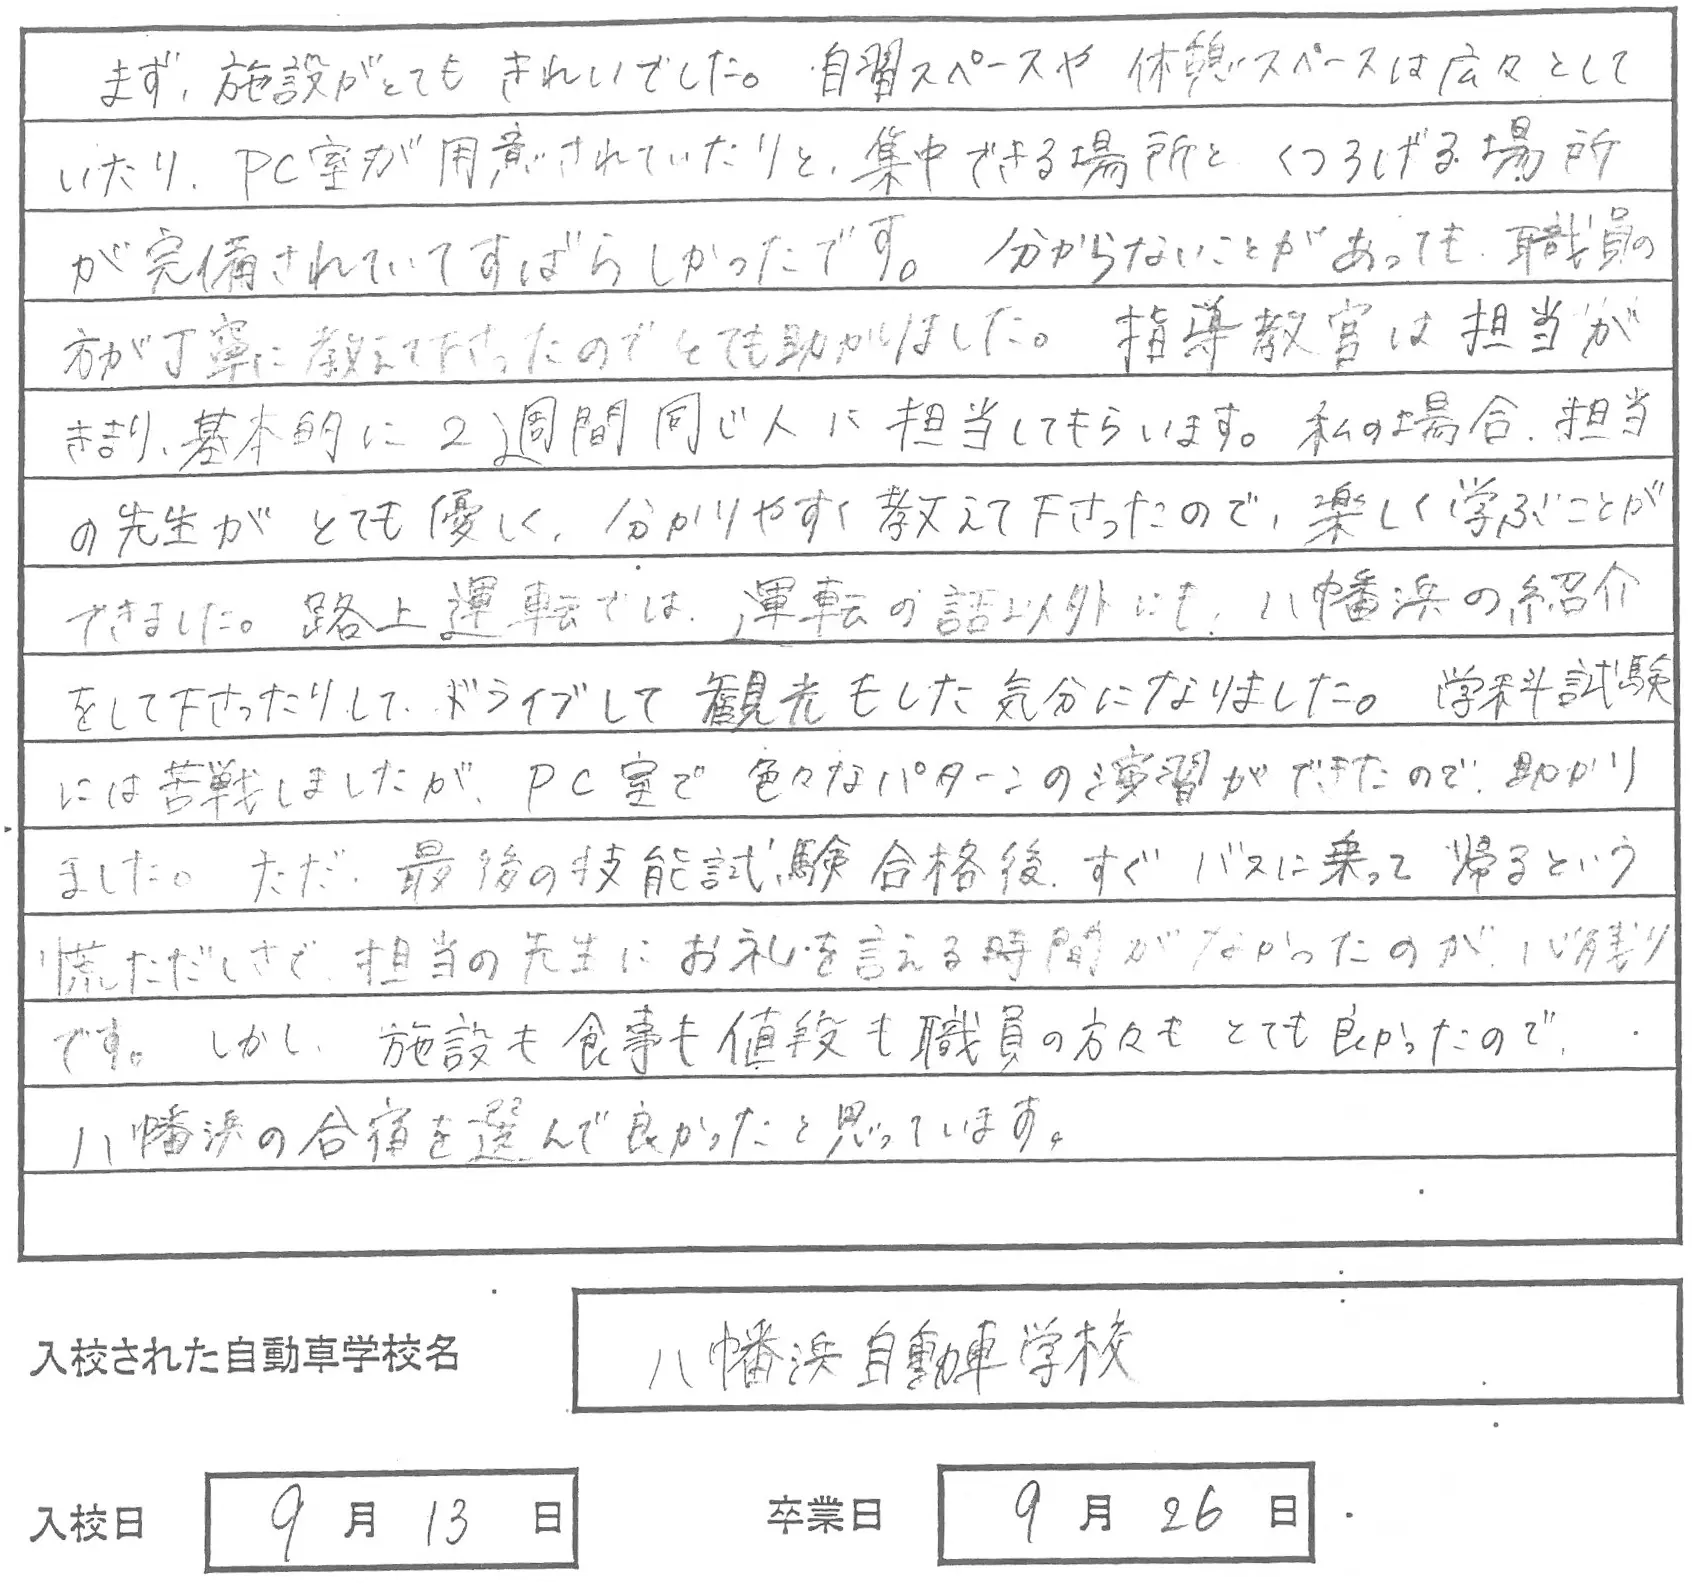 まず、施設がとてもきれいでした。自習スペースや休憩スペースは広々として
いたり、PC室が用意されていたりと、集中できる場所と、くつろげる場所
が完備されていてすばらしかったです。分からないことがあっても、職員の
方が丁寧に教えて下さったのでとても助かりました。指導教官は担当が
きまり、基本的に2週間同じ人に担当してもらいます。私の場合、担当
の先生がとても優しく、分かりやすく教えて下さったので、楽しく学ぶことが
できました。路上運転では、運転の話以外にも、八幡浜の紹介
をして下さったりして、ドライブして観光もした気分になりました。学科試験
には苦戦しましたが、PC室で色々なパターンの演習ができたので、助かり
ました。ただ、最後の技能試験合格後、すぐバスに乗って帰るという
慌ただしさで、担当の先生にお礼を言える時間がなかったのが、心残り
です。しかし、施設も食事も値段も職員の方々もとても良かったので、
八幡浜の合宿を選んで良かったと思っています。
入校された自動車学校名 八幡浜自動車学校
入校日 9月13日 卒業日 9月26日